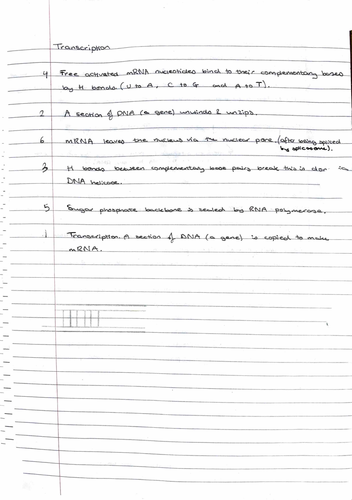 Transcription
4 Free activated mRNA nucleotides bind to their complementary bases
by H bonds (U to A, C to G and A to T).
2 A section of DNA (a gene) unwinds & unzips.
6 mRNA leaves the nucleus via the nuclear pore. (after being spliced
by spliceosome).
3 H bonds between complementary base pairs break this is
DNA helicase.
5 Sugar phosphate backbone is sealed by RNA polymerase.
1 Transcription A section of DNA (a gene) is copied to make
mRNA.